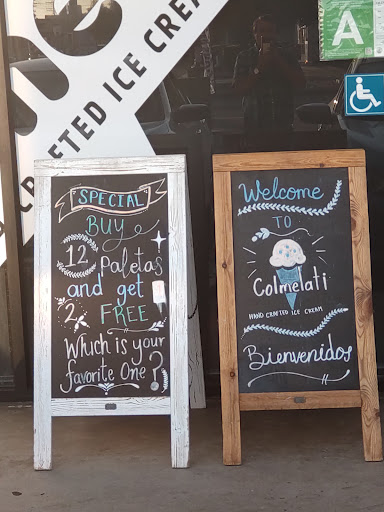 CRAFTED ICE CREA
A
SPECIAL
BUY
12 Paletas
and get
2 FREE
Which is your
favorite One?
Welcome
TO
Colmelati
HAND CRAFTED ICE CREAM
Bienvenidos